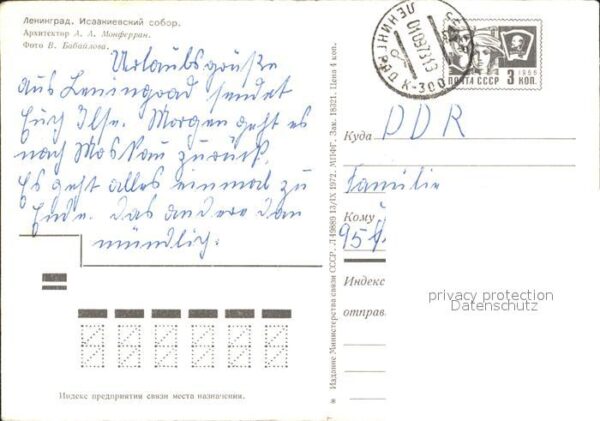 Ленинград. Исаакиевский собор.
Архитектор А. А. Монферран.
Фото В. Бабайлова.
Urlaubsgrüße
aus Leningrad sendet
Euch Ilse. Morgen geht es
nach Moskau zurück.
Es geht alles einmal zu
Ende. Das andere dan
mündlich.
Индекс предприятия связи места назначения.
* Издание Министерства связи СССР. Л 49889 13/IX 1972. МПФГ. Зак. 18321. Цена 4 коп.
ЛЕНИНГРАД К-300
010973
ПОЧТА СССР
1966
3 КОП.
Куда DDR
Familie
Кому
95
Индекс
отправ
privacy protection
Datenschutz